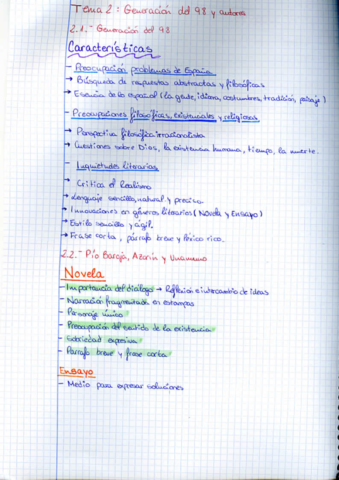 Tema 2: Generación del 98 y autores
2.1.- Generación del 98
Características
- Preocupación problemas de España
→ Búsqueda de respuestas abstractas y filosóficas
→ Esencia de lo español (la gente, idioma, costumbres, tradición, paisaje)
- Preocupaciones filosóficas, existenciales y religiosas
→ Perspectiva filosófica irracionalista
→ Cuestiones sobre Dios, la existencia humana, tiempo, la muerte.
- Inquietudes literarias
→ Crítica el Realismo
→ Lenguaje sencillo, natural y preciso
→ Innovaciones en géneros literarios (Novela y Ensayo)
→ Estilo sencillo y ágil.
→ Frase corta, párrafo breve y léxico rico.
2.2.- Pío Baroja, Azorín y Unamuno
Novela
- Importancia del diálogo → Reflexión e intercambio de ideas
- Narración fragmentada en estampas
- Personaje único
- Preocupación del sentido de la existencia
- Sobriedad expresiva
- Párrafo breve y frase corta
Ensayo
- Medio para expresar soluciones